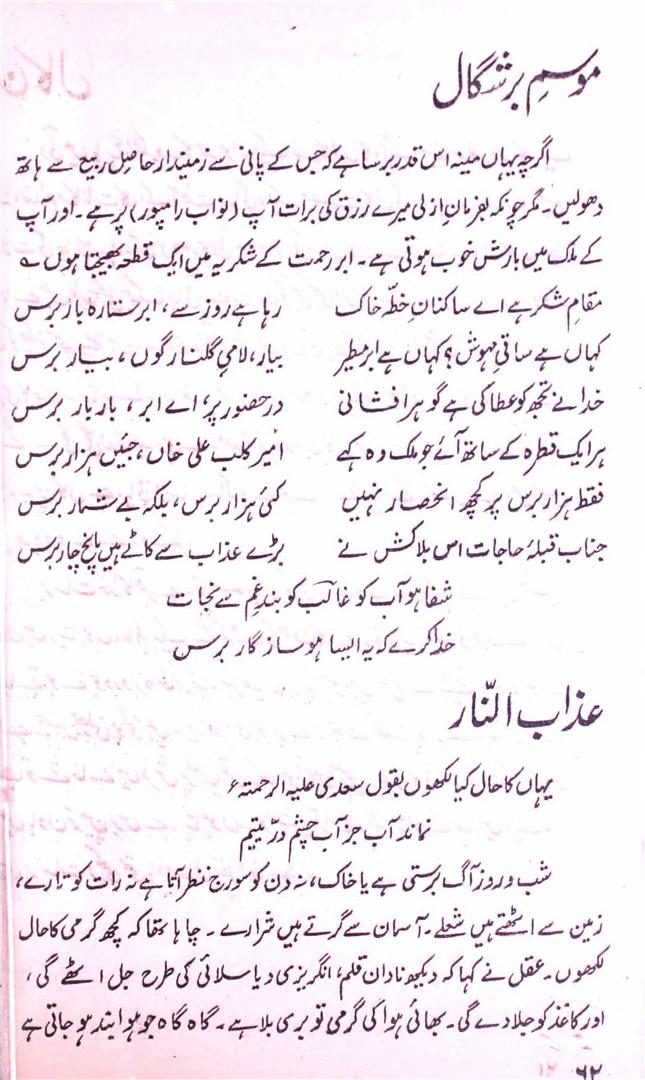 موسمِ برشگال
اگرچہ یہاں مینہ اس قدر برسا ہے کہ جس کے پانی سے زمیندار حاصلِ ربیع سے ہاتھ
دھولیں۔ مگر چونکہ بفرمانِ ازلی میرے رزق کی برات آپ (نواب رامپور) پر ہے۔ اور آپ
کے ملک میں بارش خوب ہوتی ہے۔ ابر رحمت کے شکریہ میں ایک قطعہ بھیجتا ہوں ؎
مقامِ شکر ہے اے ساکنانِ خطّہ خاک رہا ہے روز سے، ابر ستارہ بار برس
کہاں ہے ساقیِ مہوش؟ کہاں ہے ابرِ مطیر بیار، لامئِ گلنار گوں، بیار برس
خدا نے تجھ کو عطا کی ہے گوہر افشانی درِ حضور پر، اے ابر، بار بار برس
ہر ایک قطرہ کے ساتھ آئے جو ملک وہ کہے امیر کلب علی خاں، جئیں ہزار برس
فقط ہزار برس پر کچھ انحصار نہیں کئی ہزار برس، بلکہ بے شمار برس
جناب قبلۂ حاجات اس بلاکش نے بڑے عذاب سے کاٹے ہیں پانچ چار برس
شفا ہو آپ کو غالبؔ کو بندِ غم سے نجات
خدا کرے کہ یہ ایسا ہو سازگار برس
عذاب النّار
یہاں کا حال کیا لکھوں بقول سعدی علیہ الرحمتہ ع
نماند آب جز آب چشم درّ یتیم
شب و روز آگ برستی ہے یا خاک، نہ دن کو سورج نظر آتا ہے نہ رات کو تارے،
زمین سے اٹھتے ہیں شعلے۔ آسمان سے گرتے ہیں شرارے۔ چاہا تھا کہ کچھ گرمی کا حال
لکھوں۔ عقل نے کہا کہ دیکھ نادان قلم، انگریزی دیا سلائی کی طرح جل اٹھے گی،
اور کاغذ کو جلا دے گی۔ بھائی ہوا کی گرمی تو بری بلا ہے۔ گاہ گاہ جو ہوا بند ہو جاتی ہے
۶۲